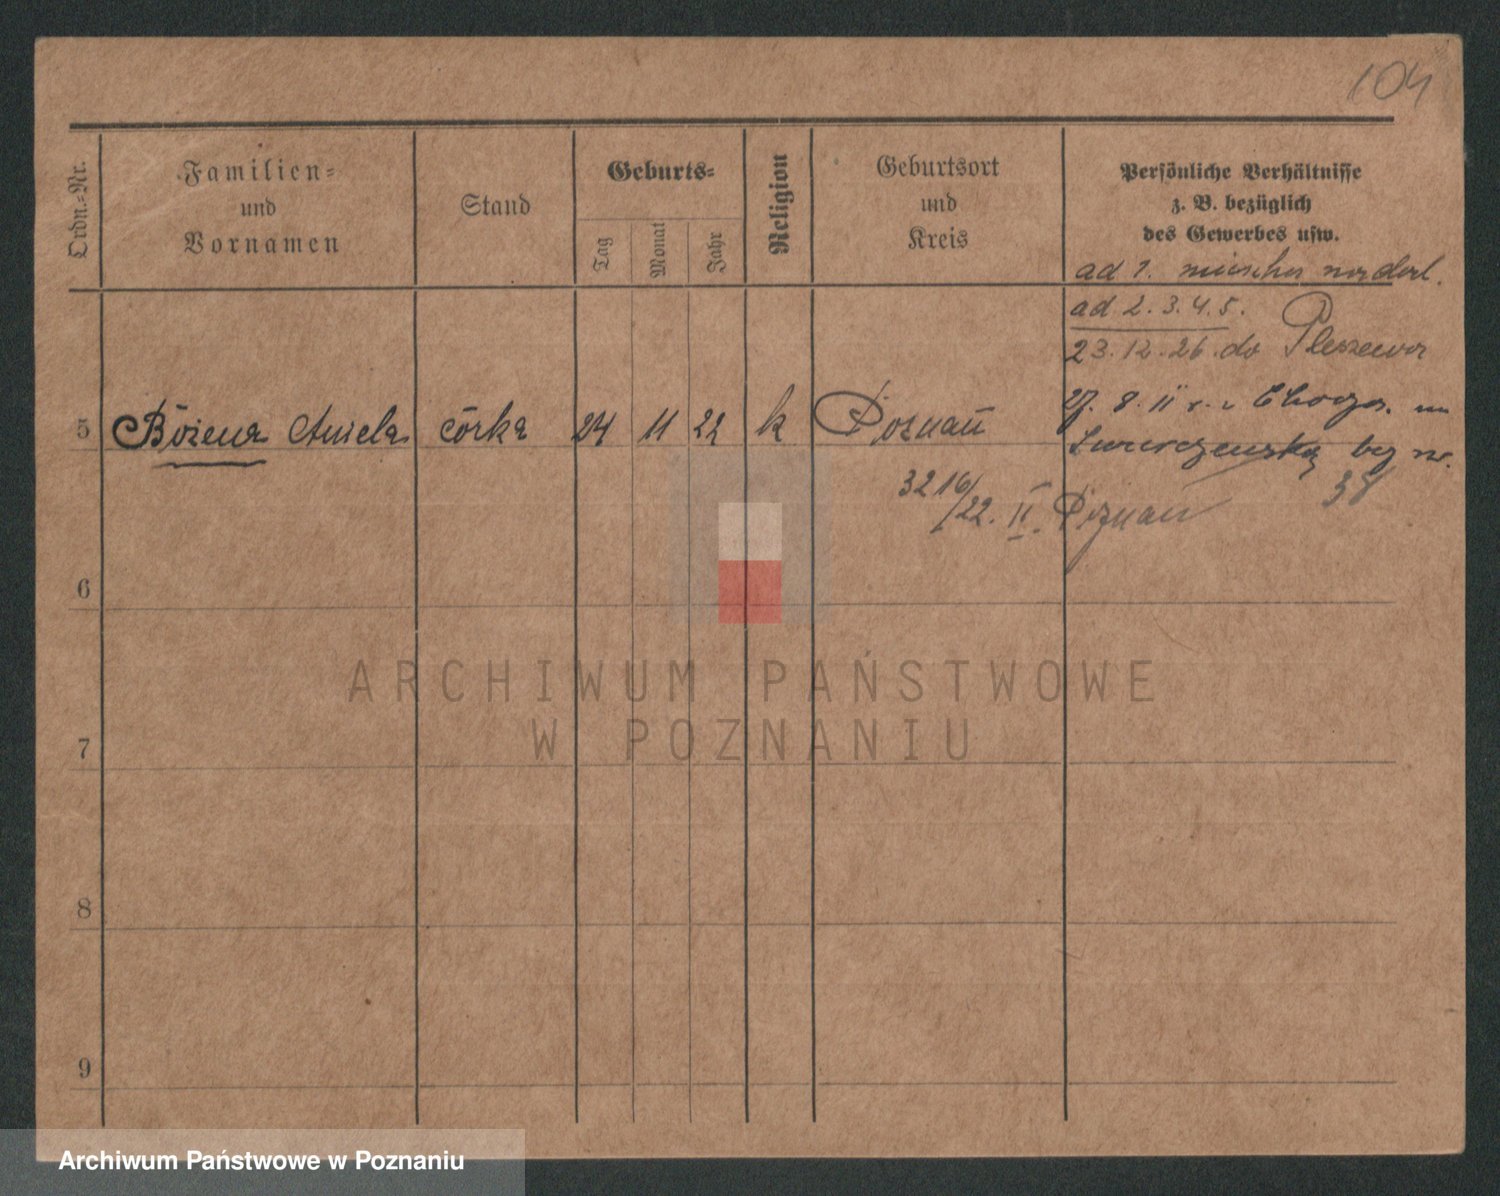 104
Ordn.-Nr.
Familien-
und
Vornamen
Stand
Geburts-
Tag
Monat
Jahr
Religion
Geburtsort
und
Kreis
Persönliche Verhältnisse
z. B. bezüglich
des Gewerbes usw.
ad 1.
ad 2. 3. 4. 5.
23. 12. 26. do Pleszewa
5 Bożena Aniela córka 24 11 22 k Poznań
27. 8.
3216/22. II. Poznań
38
6
7
8
9
ARCHIWUM PAŃSTWOWE
W POZNANIU
Archiwum Państwowe w Poznaniu